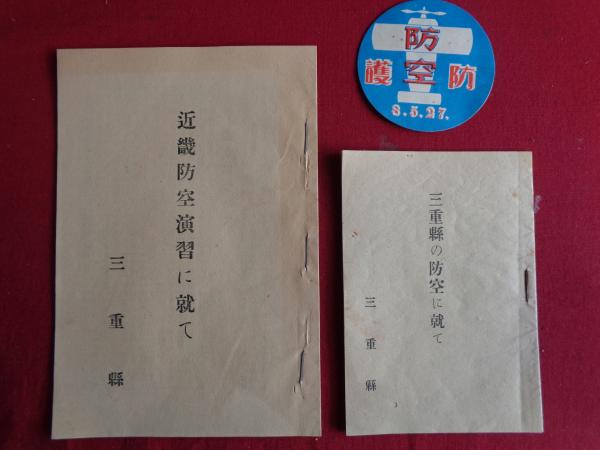 近畿防空演習に就て
三重縣
防空
護防
8.5.27.
三重縣の防空に就て
三重縣